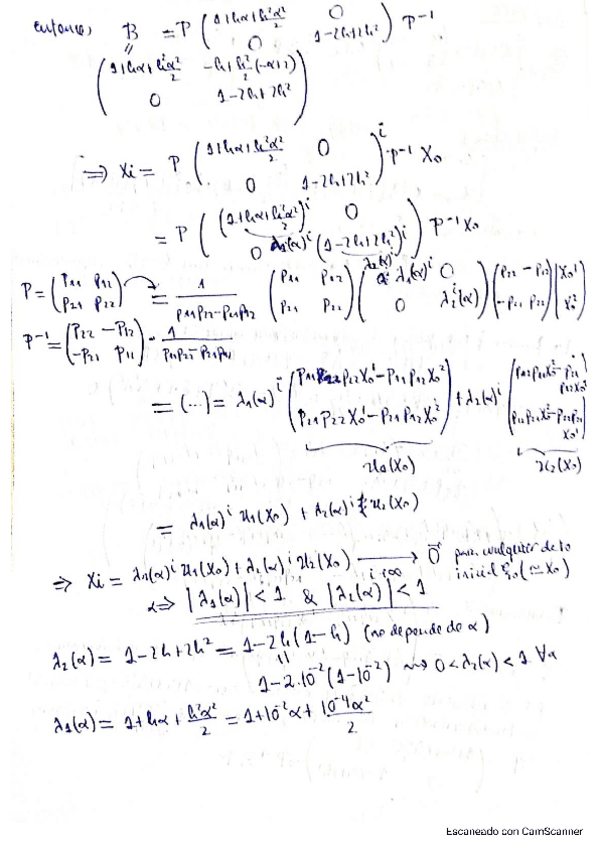 entonces B = P ( 1+hα+h²α²/2 0 ; 0 1-2h+2h² ) P⁻¹
"
( 1+hα+h²α²/2 -h+h²/2(-α+2) ; 0 1-2h+2h² )
⟹ Xi = P ( 1+hα+h²α²/2 0 ; 0 1-2h+2h² )ⁱ · P⁻¹ X₀
= P ( (1+hα+h²α²/2)ⁱ 0 ; 0 (1-2h+2h²)ⁱ ) P⁻¹ X₀
λ₁(α)ⁱ λ₂(α)ⁱ
P = ( P₁₁ P₁₂ ; P₂₁ P₂₂ ) = 1/(P₁₁P₂₂-P₂₁P₁₂) ( P₁₁ P₁₂ ; P₂₁ P₂₂ ) ( λ₁(α)ⁱ 0 ; 0 λ₂ⁱ(α) ) ( P₂₂ -P₁₂ ; -P₂₁ P₁₁ ) ( X₀¹ ; X₀² )
P⁻¹ = ( P₂₂ -P₁₂ ; -P₂₁ P₁₁ ) · 1/(P₁₁P₂₂-P₂₁P₁₂)
= (...) = λ₁(α)ⁱ ( P₁₁P₂₂X₀¹-P₁₁P₁₂X₀² ; P₂₁P₂₂X₀¹-P₂₁P₁₂X₀² ) + λ₂(α)ⁱ
u₁(X₀) u₂(X₀)
= λ₁(α)ⁱ u₁(X₀) + λ₂(α)ⁱ u₂(X₀)
⟹ Xi = λ₁(α)ⁱ u₁(X₀) + λ₂(α)ⁱ u₂(X₀) ⟶ 0 para cualquier dato
i→∞ inicial ξ₀(≃X₀)
⟺ |λ₁(α)| < 1 & |λ₂(α)| < 1
λ₂(α) = 1-2h+2h² = 1-2h(1-h) (no depende de α)
"
1-2·10⁻²(1-10⁻²) ⟿ 0<λ₂(α)<1 ∀α
λ₁(α) = 1+hα+h²α²/2 = 1+10⁻²α+10⁻⁴α²/2
Escaneado con CamScanner